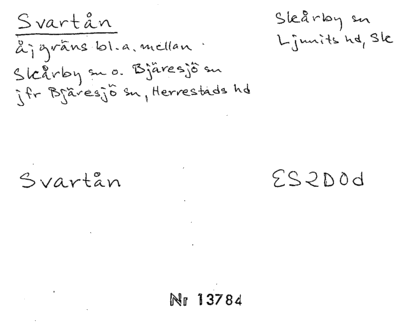 Svartån
å; gräns bl.a. mellan
Skårby sn o. Bjäresjö sn
jfr Bjäresjö sn, Herrestads hd
Skårby sn
Ljunits hd, Sk
Svartån
ES2D0d
Nr 13784